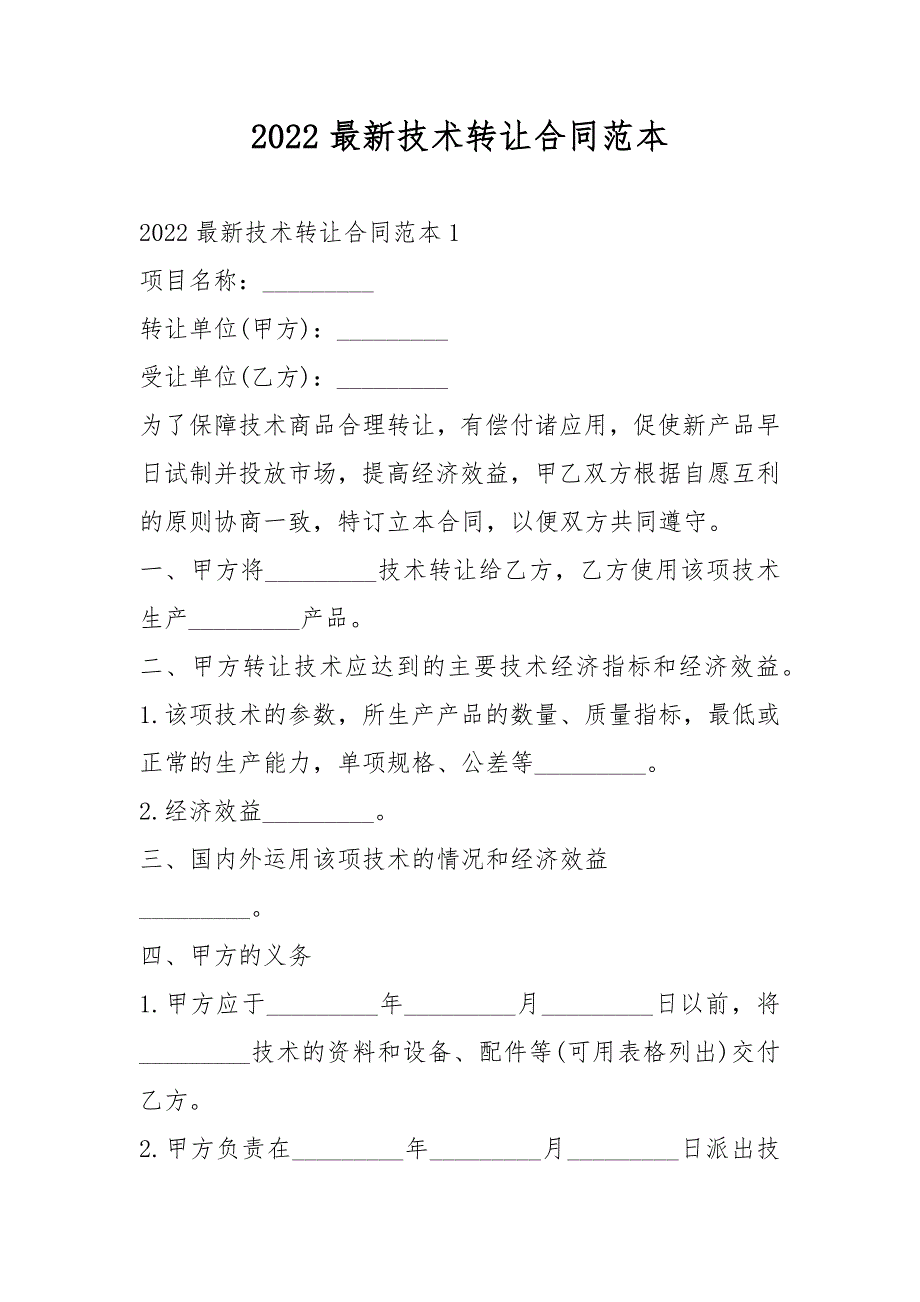 2022最新技术转让合同范本
2022最新技术转让合同范本1
项目名称：_________
转让单位(甲方)：_________
受让单位(乙方)：_________
为了保障技术商品合理转让，有偿付诸应用，促使新产品早
日试制并投放市场，提高经济效益，甲乙双方根据自愿互利
的原则协商一致，特订立本合同，以便双方共同遵守。
一、甲方将_________技术转让给乙方，乙方使用该项技术
生产_________产品。
二、甲方转让技术应达到的主要技术经济指标和经济效益。
1.该项技术的参数，所生产产品的数量、质量指标，最低或
正常的生产能力，单项规格、公差等_________。
2.经济效益_________。
三、国内外运用该项技术的情况和经济效益
_________。
四、甲方的义务
1.甲方应于_________年_________月_________日以前，将
_________技术的资料和设备、配件等(可用表格列出)交付
乙方。
2.甲方负责在_________年_________月_________日派出技